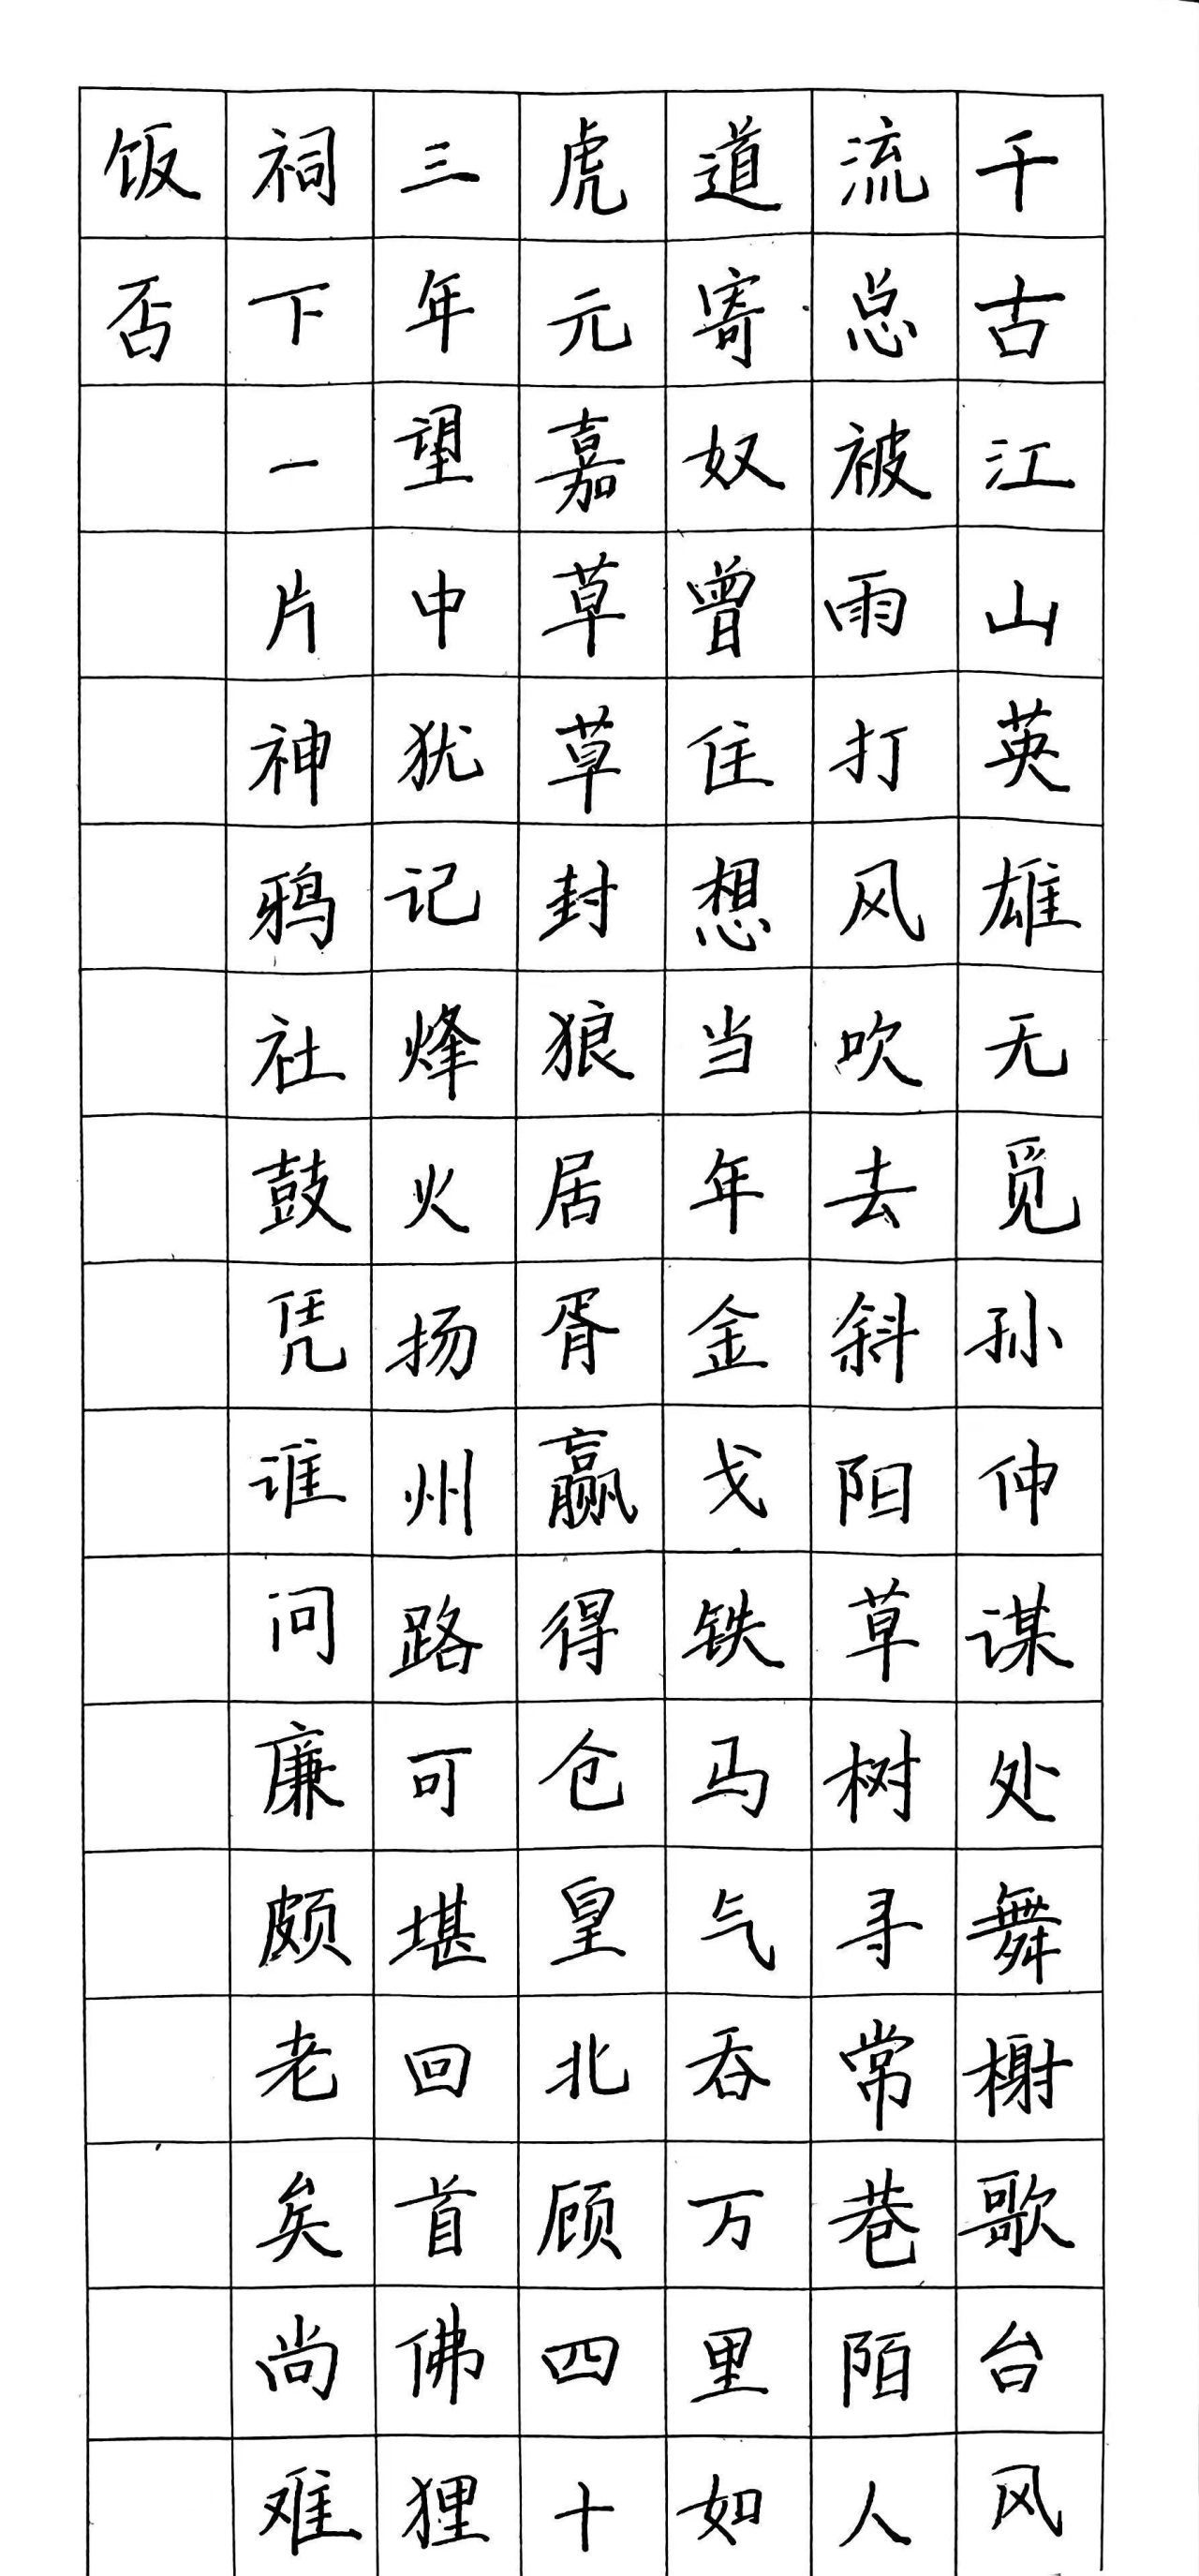 千古江山英雄无觅孙仲谋处舞榭歌台风
流总被雨打风吹去斜阳草树寻常巷陌人
道寄奴曾住想当年金戈铁马气吞万里如
虎元嘉草草封狼居胥赢得仓皇北顾四十
三年望中犹记烽火扬州路可堪回首佛狸
祠下一片神鸦社鼓凭谁问廉颇老矣尚难
饭否